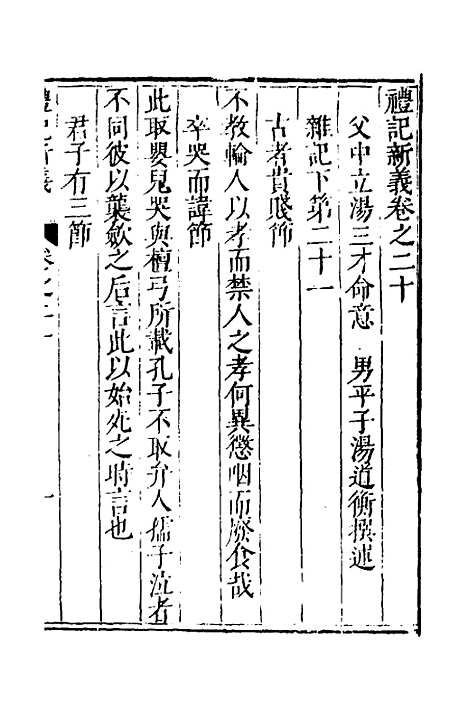 禮記新義卷之二十
父中立湯三才命意 男平子湯道衡撰述
雜記下第二十一
古者貴賤節
不教輪人以孝而禁人之孝何異懲咽而廢食哉
卒哭而諱節
此取嬰兒哭與檀弓所載孔子不取弁人孺子泣者
不同彼以襲斂之后言此以始死之時言也
君子有三節
禮記新義